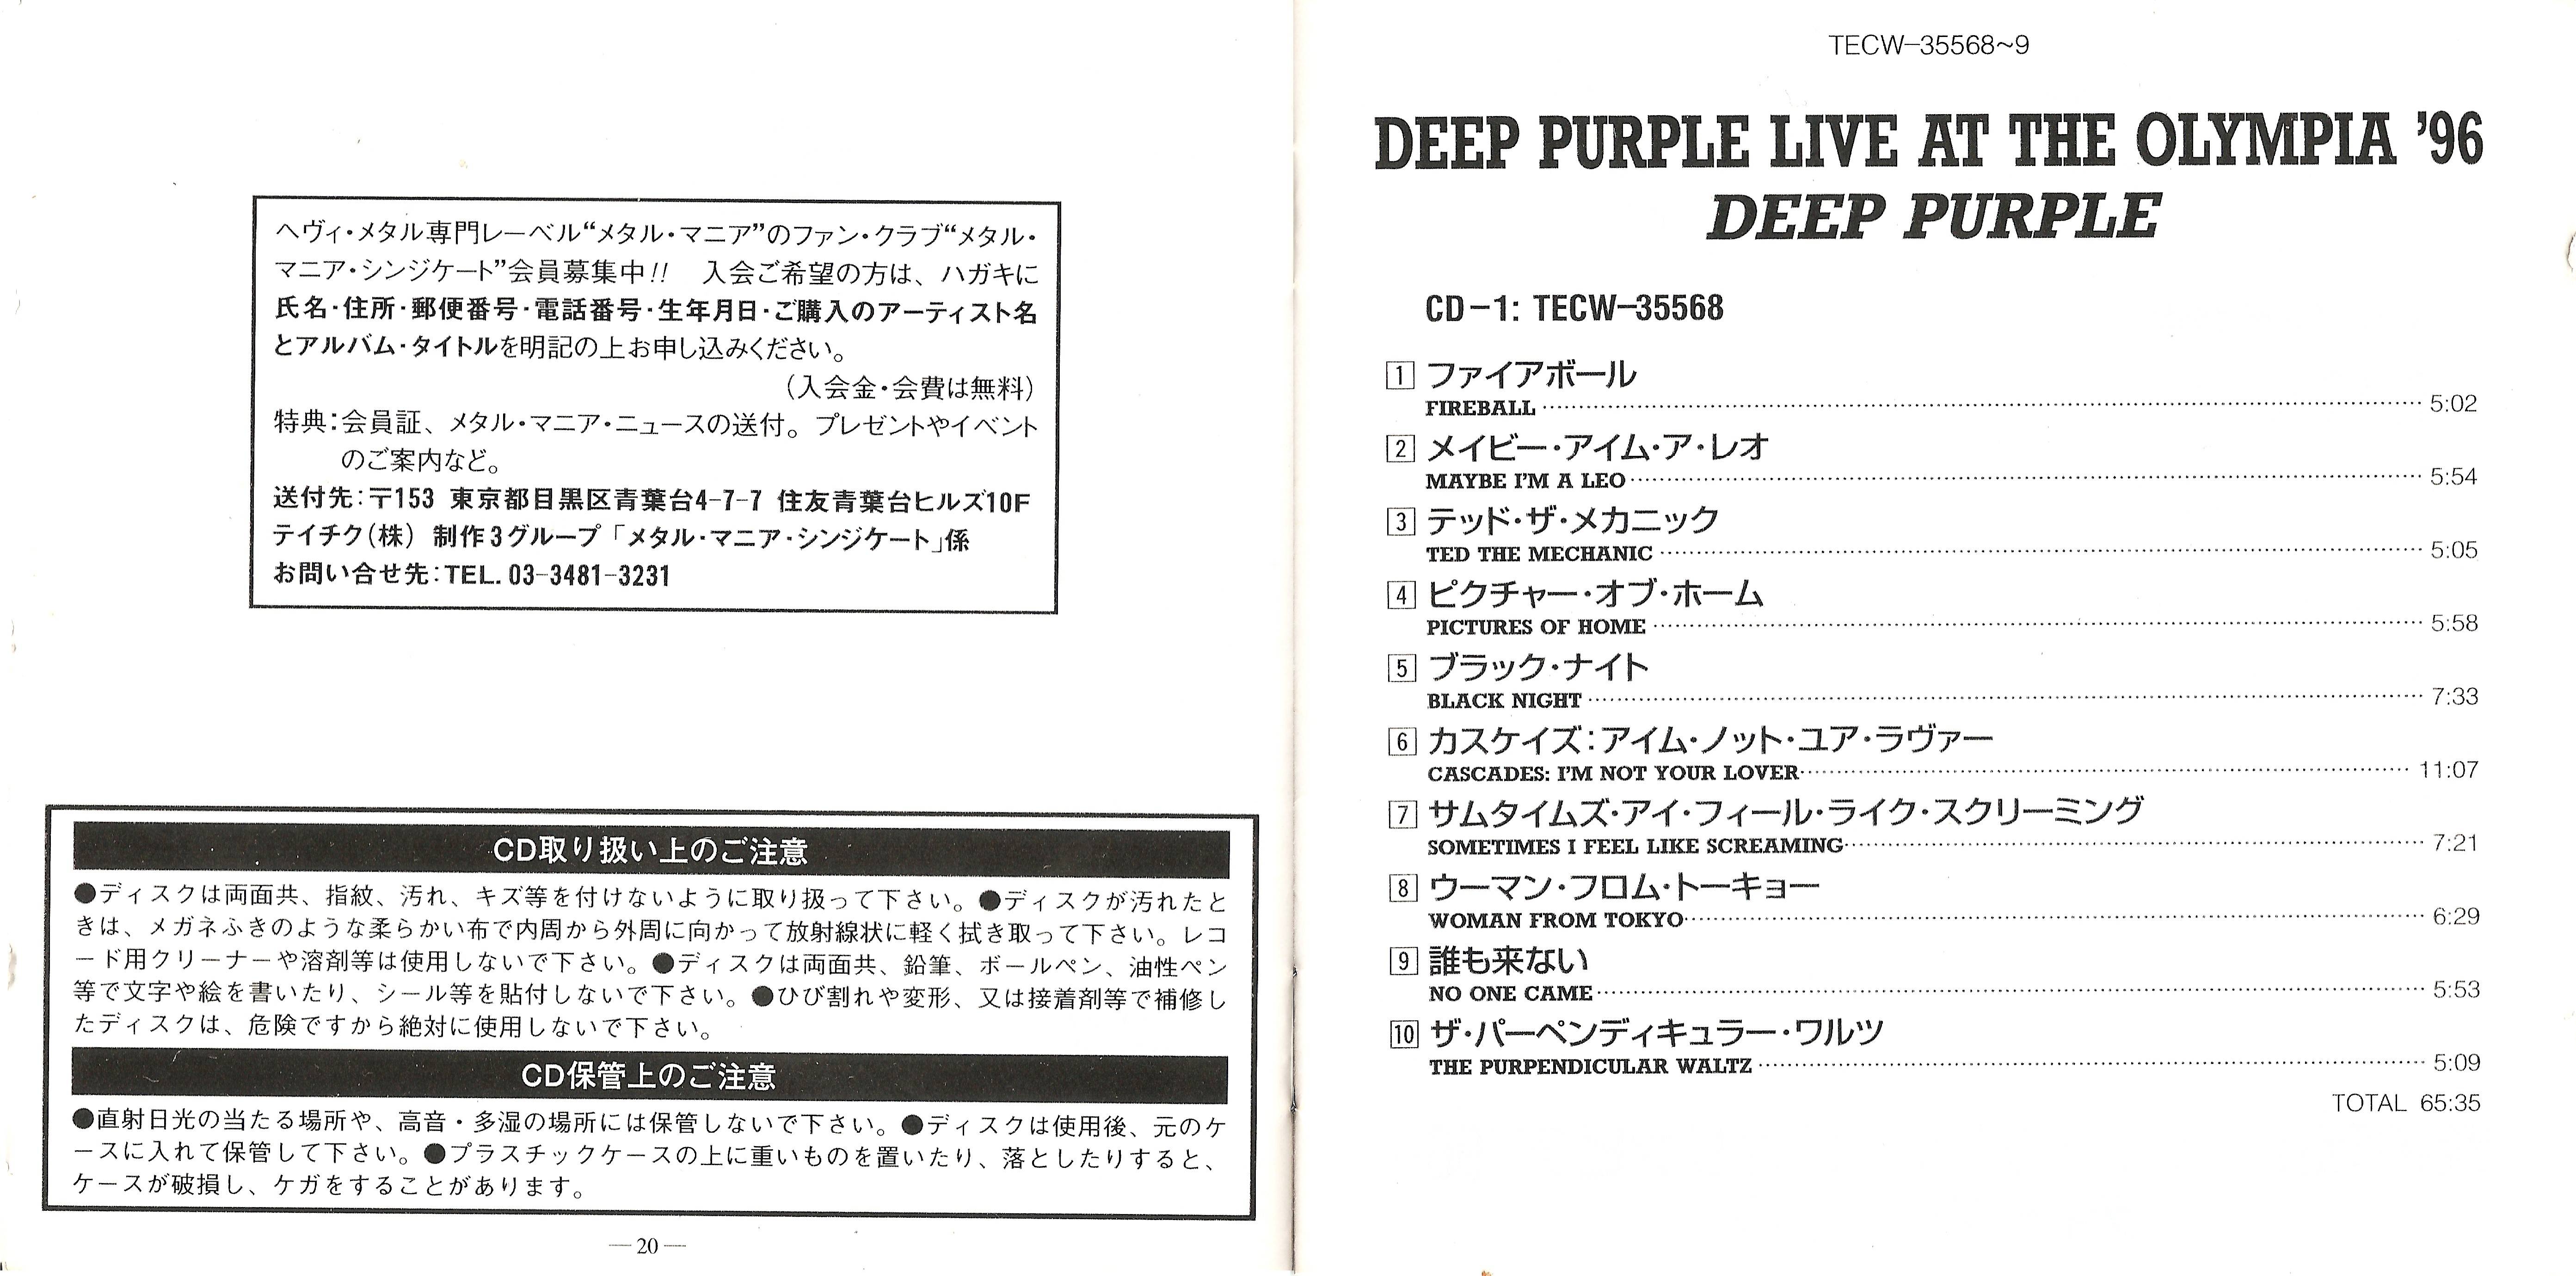 ヘヴィ・メタル専門レーベル“メタル・マニア”のファン・クラブ“メタル・
マニア・シンジケート”会員募集中!!　入会ご希望の方は、ハガキに
氏名・住所・郵便番号・電話番号・生年月日・ご購入のアーティスト名
とアルバム・タイトルを明記の上お申し込みください。
(入会金・会費は無料)
特典:会員証、メタル・マニア・ニュースの送付。プレゼントやイベント
のご案内など。
送付先:〒153 東京都目黒区青葉台4-7-7 住友青葉台ヒルズ10F
テイチク(株) 制作3グループ「メタル・マニア・シンジケート」係
お問い合せ先:TEL. 03-3481-3231
CD取り扱い上のご注意
●ディスクは両面共、指紋、汚れ、キズ等を付けないように取り扱って下さい。●ディスクが汚れたと
きは、メガネふきのような柔らかい布で内周から外周に向かって放射線状に軽く拭き取って下さい。レコ
ード用クリーナーや溶剤等は使用しないで下さい。●ディスクは両面共、鉛筆、ボールペン、油性ペン
等で文字や絵を書いたり、シール等を貼付しないで下さい。●ひび割れや変形、又は接着剤等で補修し
たディスクは、危険ですから絶対に使用しないで下さい。
CD保管上のご注意
●直射日光の当たる場所や、高音・多湿の場所には保管しないで下さい。●ディスクは使用後、元のケ
ースに入れて保管して下さい。●プラスチックケースの上に重いものを置いたり、落としたりすると、
ケースが破損し、ケガをすることがあります。
— 20 —
TECW-35568~9
DEEP PURPLE LIVE AT THE OLYMPIA ’96
DEEP PURPLE
CD-1: TECW-35568
1 ファイアボール
FIREBALL 5:02
2 メイビー・アイム・ア・レオ
MAYBE I'M A LEO 5:54
3 テッド・ザ・メカニック
TED THE MECHANIC 5:05
4 ピクチャー・オブ・ホーム
PICTURES OF HOME 5:58
5 ブラック・ナイト
BLACK NIGHT 7:33
6 カスケイズ:アイム・ノット・ユア・ラヴァー
CASCADES: I'M NOT YOUR LOVER 11:07
7 サムタイムズ・アイ・フィール・ライク・スクリーミング
SOMETIMES I FEEL LIKE SCREAMING 7:21
8 ウーマン・フロム・トーキョー
WOMAN FROM TOKYO 6:29
9 誰も来ない
NO ONE CAME 5:53
10 ザ・パーペンディキュラー・ワルツ
THE PURPENDICULAR WALTZ 5:09
TOTAL 65:35